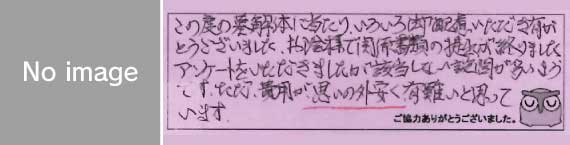 No image
この度の家解体に当たり、いろいろ御配慮いただき有が
とうございました、お陰様で関係書類の提出が終りました
アンケートをいただきましたが該当しない設問が多いよう
です、ただ、費用が思いの外安く有難いと思って
います。
ご協力ありがとうございました。